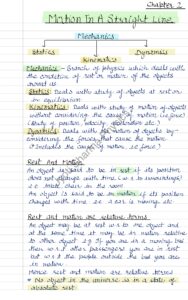 Chapter 2
Motion In A Straight Line
Mechanics
Statics Dynamics
Kinematics
Mechanics - Branch of physics which deals with
the condition of rest or motion of the objects
around us
Statics: Deals with study of objects at rest or
in equilibrium
Kinematics: Deals with study of motion of objects
without considering the cause of motion i.e force
(Study of position, velocity, acceleration etc)
Dynamics: Deals with the motion of objects by
considering the forces that cause the motion
(Includes the cause of motion i.e force)
Rest And Motion
An object is said to be in rest if its position
does not change with time w.r.t to surroundings
ex: table, chair in the room
An object is said to be in motion if its position
changes with time ex: a car is moving etc
Rest and motion are relative terms
An object may be at rest w.r.t to one object and
at the same time it may be in motion relative
to other object
but w.r.t the people outside the bus you are
in motion
Hence rest and motion are relative terms
No object in the universe is in a state of
absolute rest